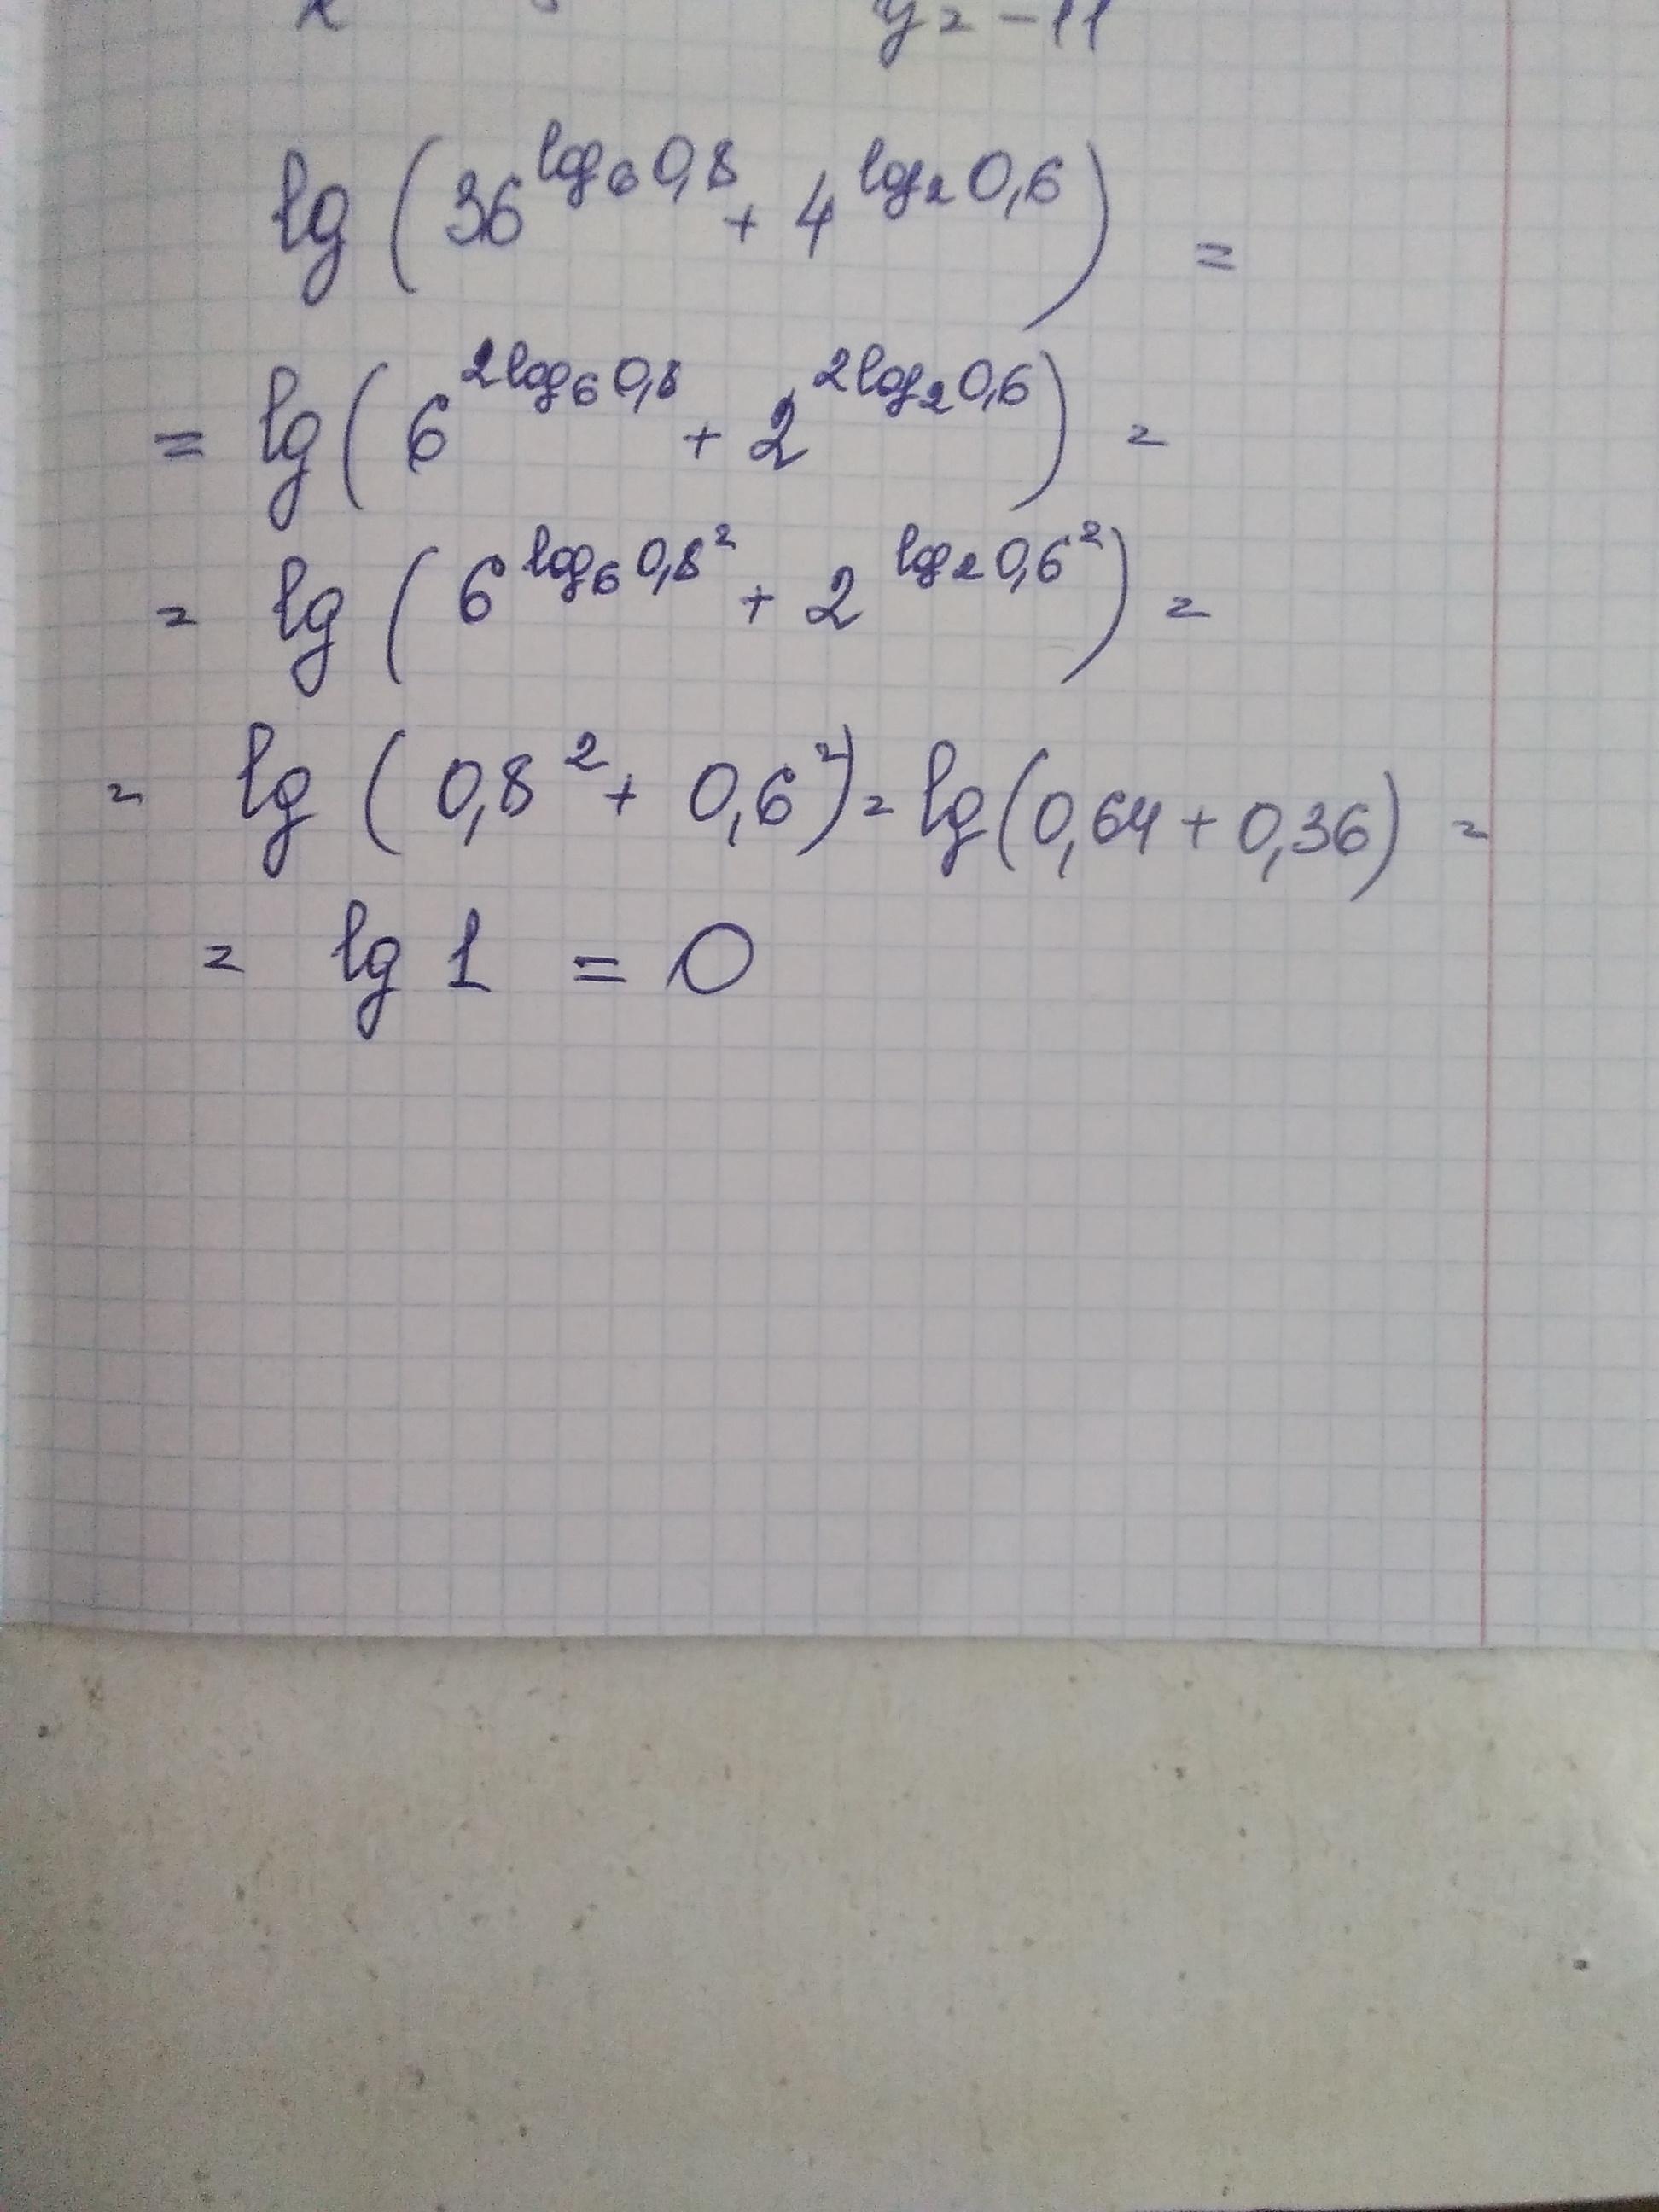 y = -11
lg (36^{log_6 0,8} + 4^{log_2 0,6}) =
= lg (6^{2log_6 0,8} + 2^{2log_2 0,6}) =
= lg (6^{log_6 0,8^2} + 2^{log_2 0,6^2}) =
= lg (0,8^2 + 0,6^2) = lg (0,64 + 0,36) =
= lg 1 = 0